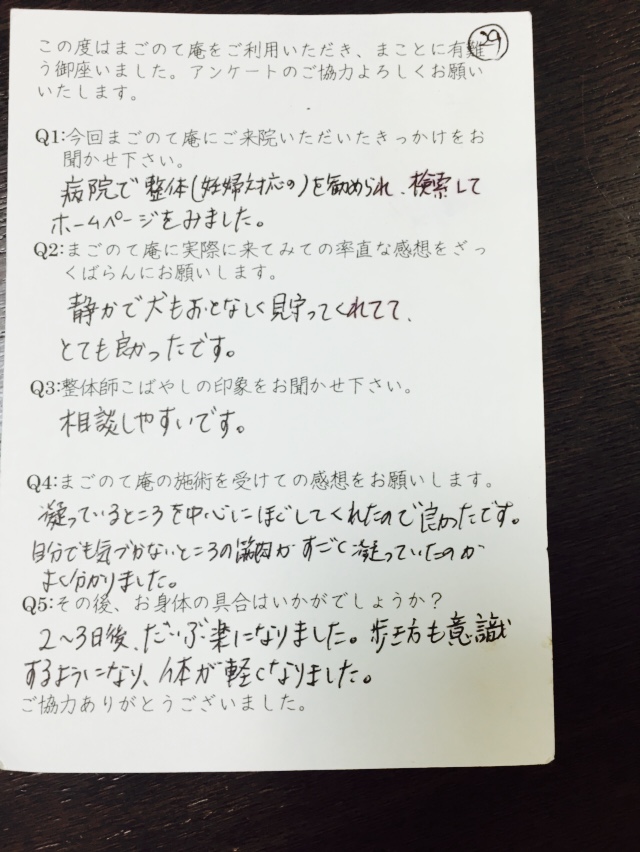 29
この度はまごのて庵をご利用いただき、まことに有難
う御座いました。アンケートのご協力よろしくお願い
いたします。
Q1:今回まごのて庵にご来院いただいたきっかけをお
聞かせ下さい。
病院で整体(妊婦対応の)を勧められ、検索して
ホームページをみました。
Q2:まごのて庵に実際に来てみての率直な感想をざっ
くばらんにお願いします。
静かで犬もおとなしく見守ってくれてて、
とても良かったです。
Q3:整体師こばやしの印象をお聞かせ下さい。
相談しやすいです。
Q4:まごのて庵の施術を受けての感想をお願いします。
凝っているところを中心にほぐしてくれたので良かったです。
自分でも気づかないところの筋肉がすごく凝っていたのが
よく分かりました。
Q5:その後、お身体の具合はいかがでしょうか？
2〜3日後、だいぶ楽になりました。歩き方も意識
するようになり、体が軽くなりました。
ご協力ありがとうございました。